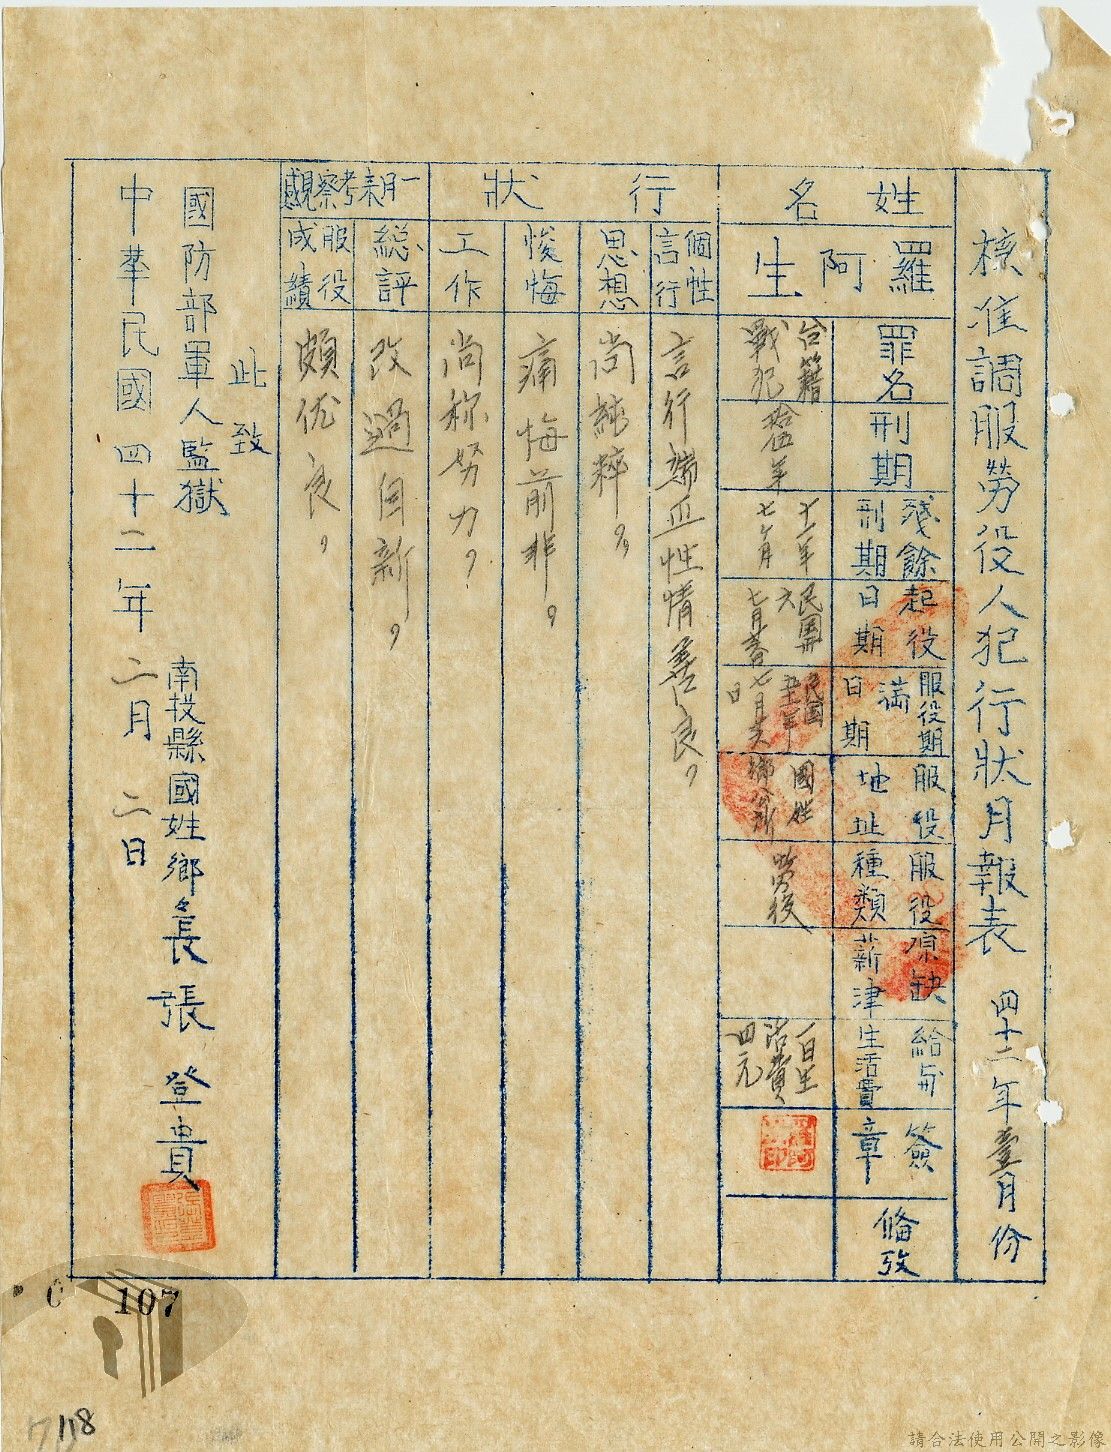 核准調服勞役人犯行狀月報表 四十二年壹月份
姓名
羅阿生
罪名
台籍戰犯
刑期
拾伍年
殘餘刑期
十一年七ケ月
起役日期
服役期滿日期
服役地址
國姓鄉公所
服役種類
勞役
原缺薪津
給与生活費
一日生活費四元
簽章
備攷
行狀
個性言行
言行端正性情善良,
思想
尚純粹,
悛悔
痛悔前非。
工作
尚称努力,
一月來考察觀感
総評
改過自新,
服役成績
頗优良,
此致
國防部軍人監獄
南投縣國姓鄉々長張登貴
中華民國四十二年二月二日
107
118
請合法使用公開之影像